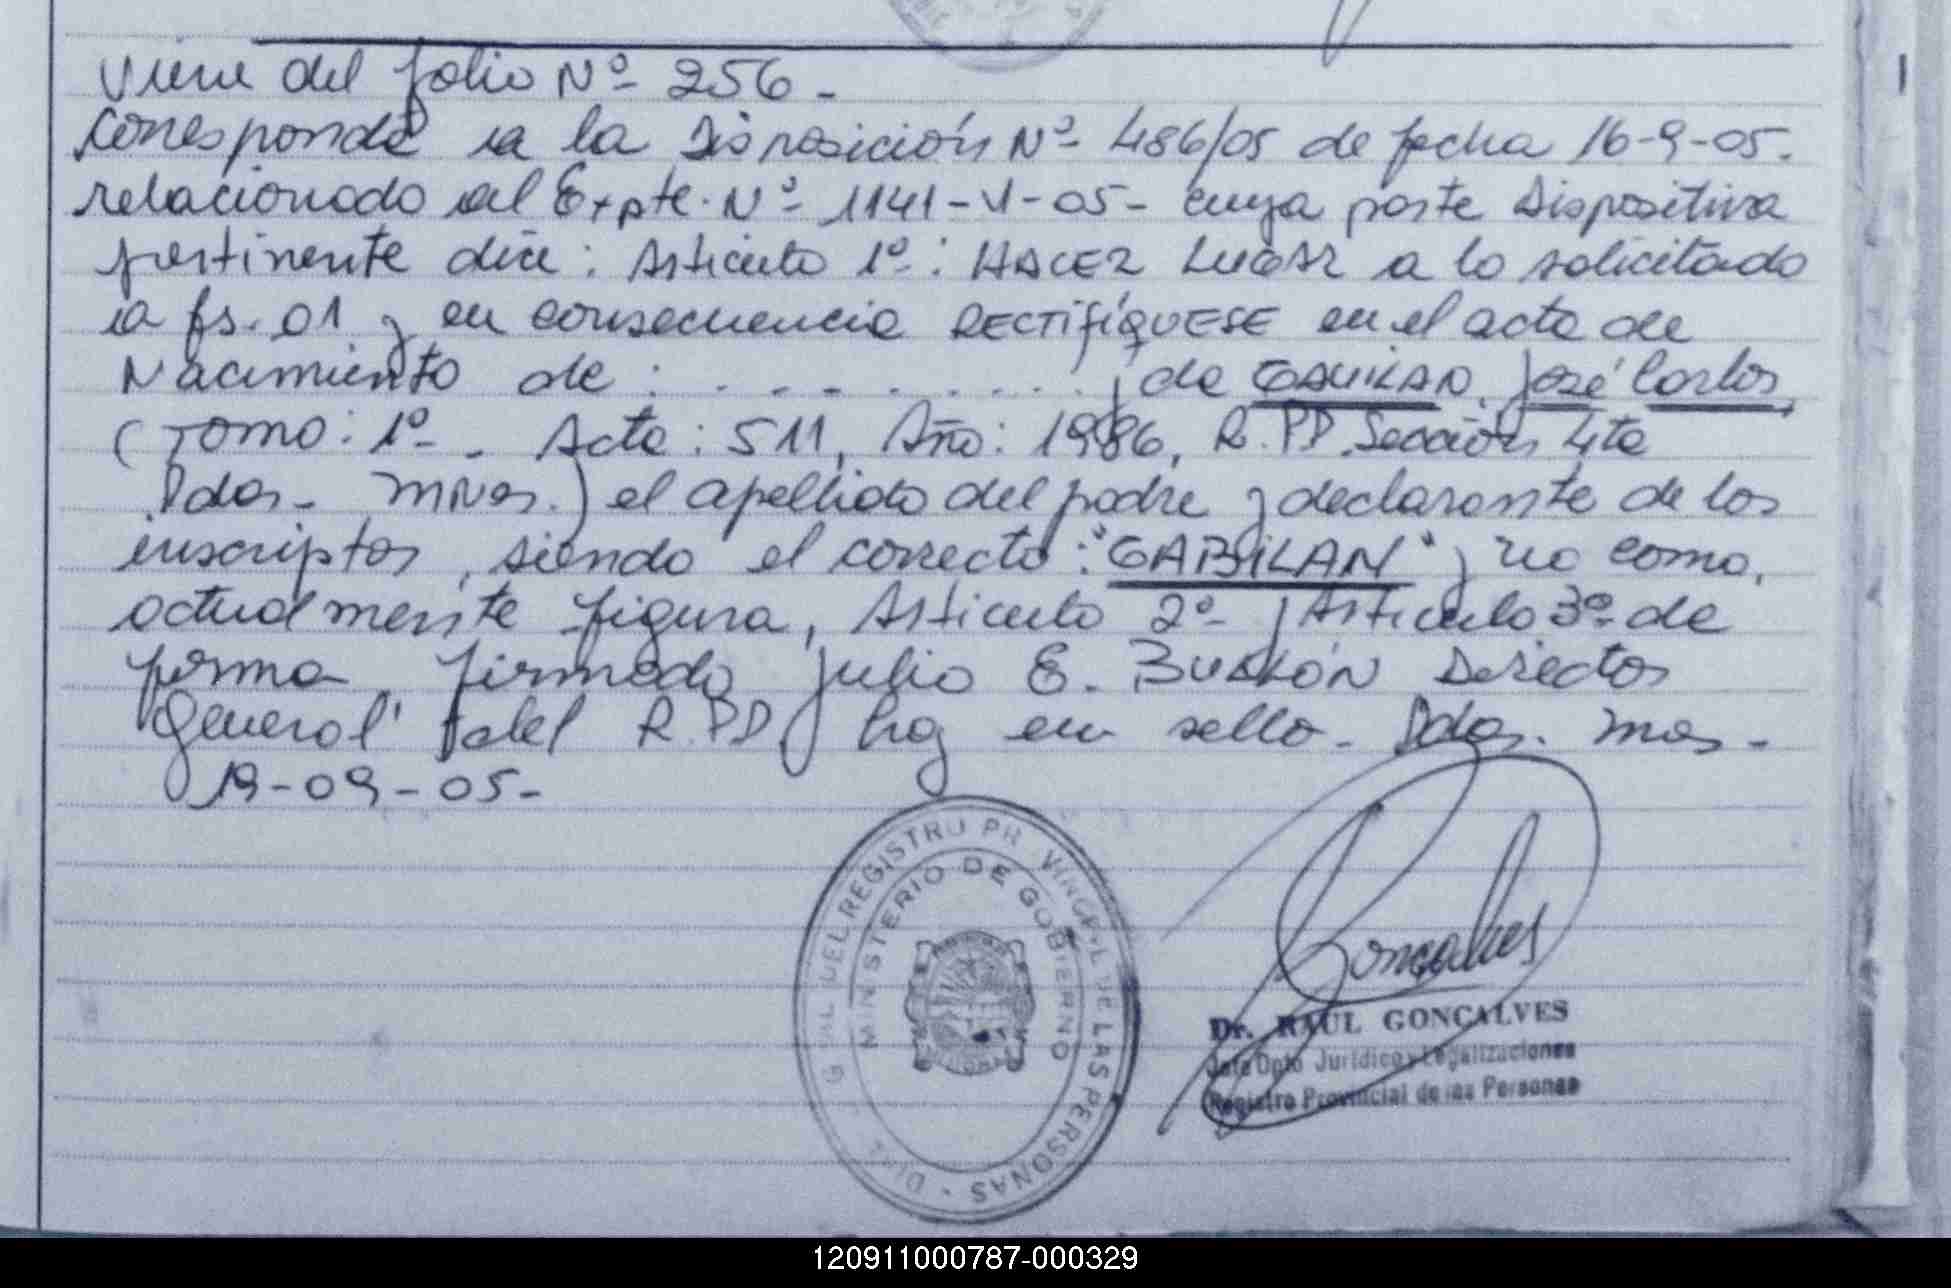 Viene del folio Nº 256 -
Corresponde a la Disposición Nº 486/05 de fecha 16-9-05.
relacionado al Expte. Nº 1141-V-05- cuya parte Dispositiva
pertinente dice: Artículo 1º: HACER LUGAR a lo solicitado
a fs. 01 y en consecuencia RECTIFÍQUESE en el acta de
Nacimiento de: . . - - - . . . . . y de GAUILAN, José Carlos,
(Tomo: 1º - . Acta: 511, Año: 1986, R.P.P. Sección 4ta
Pdas. Mnes.) el apellido del padre y declarante de los
inscriptos, siendo el correcto: "GABILAN" y no como,
actualmente figura, Artículo 2º y Artículo 3º de
forma firmado Julio E. Director
General del R.P.P. hay un sello. Pdas. Mnes. -
19-09-05-
DIR. GRAL DEL REGISTRO PROVINCIAL DE LAS PERSONAS -
MINISTERIO DE GOBIERNO
Goncalves
Dr. RAUL GONCALVES
Jefe Dpto Jurídico y Legalizaciones
Registro Provincial de las Personas
120911000787-000329